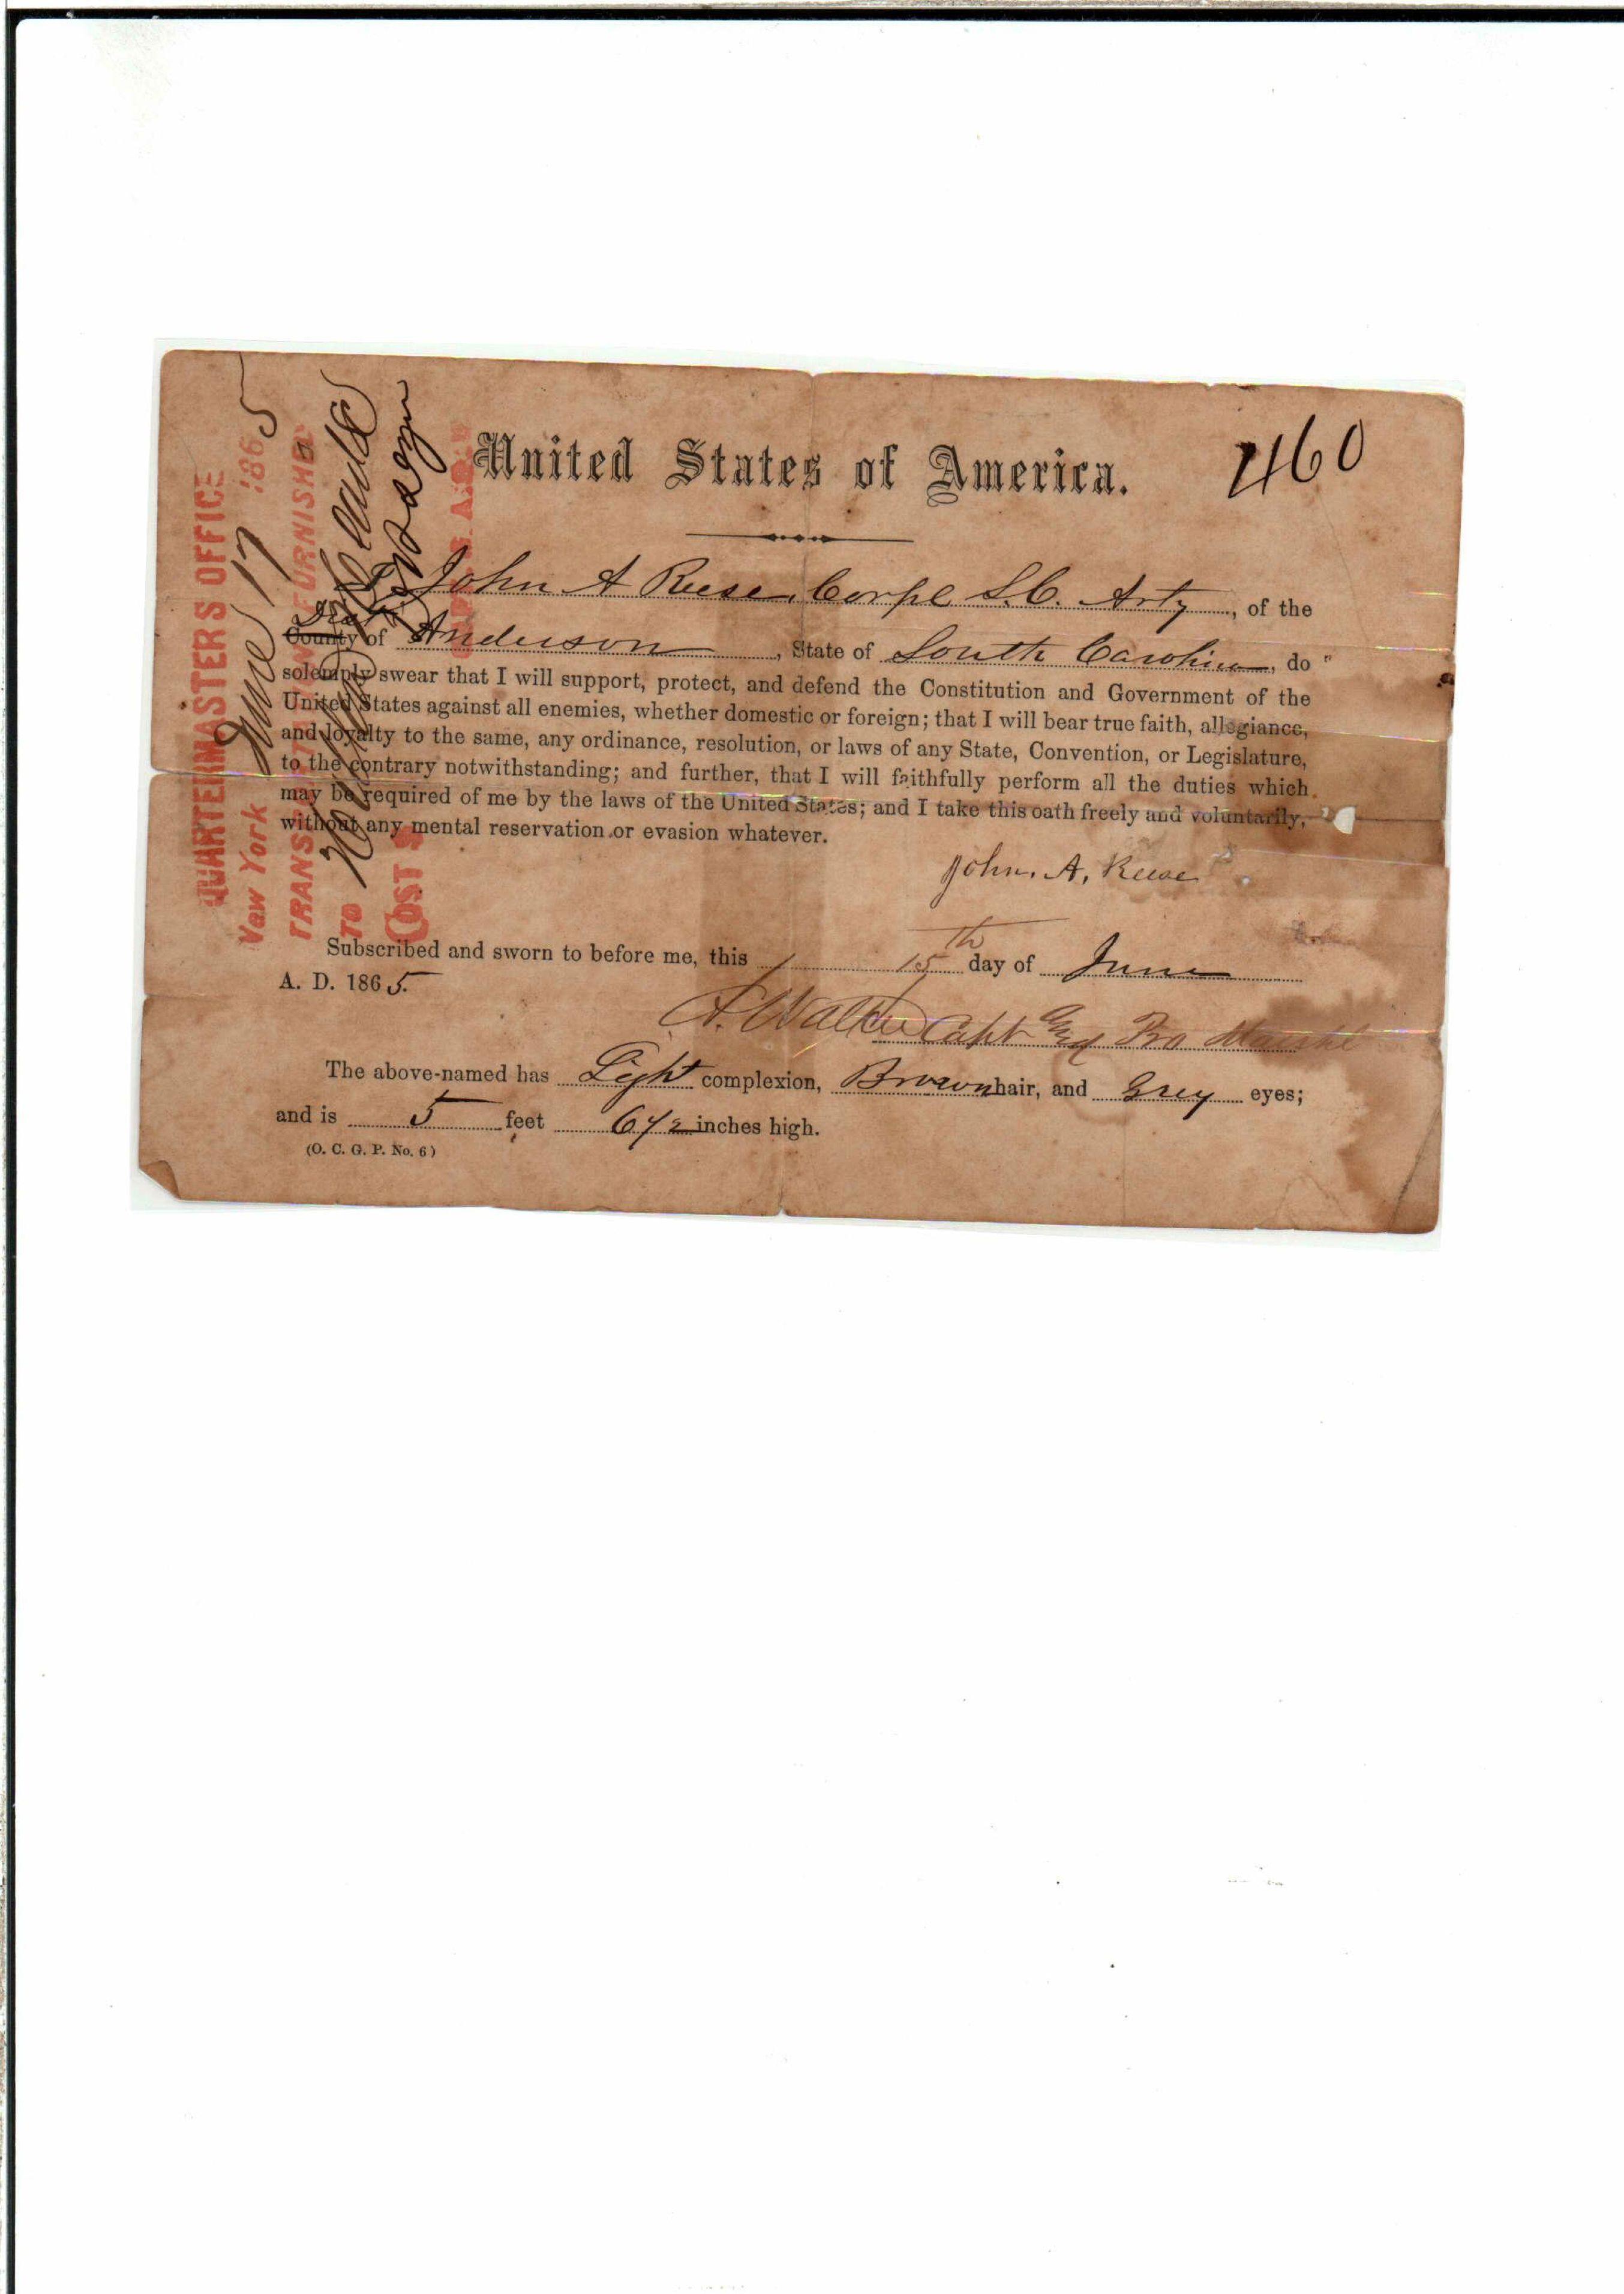 United States of America.
460
I, John A Reese, Corpl S.C. Arty, of the
Dist
County of Anderson, State of South Carolina, do
solemnly swear that I will support, protect, and defend the Constitution and Government of the
United States against all enemies, whether domestic or foreign; that I will bear true faith, allegiance,
and loyalty to the same, any ordinance, resolution, or laws of any State, Convention, or Legislature,
to the contrary notwithstanding; and further, that I will faithfully perform all the duties which
may be required of me by the laws of the United States; and I take this oath freely and voluntarily,
without any mental reservation or evasion whatever.
John. A. Reese
Subscribed and sworn to before me, this 15th day of June
A. D. 1865.
A. Walker Capt and Pro Marshl
The above-named has Light complexion, Brown hair, and Grey eyes;
and is 5 feet 6 1/2 inches high.
(O. C. G. P. No. 6)
QUARTERMASTERS OFFICE
New York June 17 1865
TRANSPORTATION FURNISHED
TO
COST $